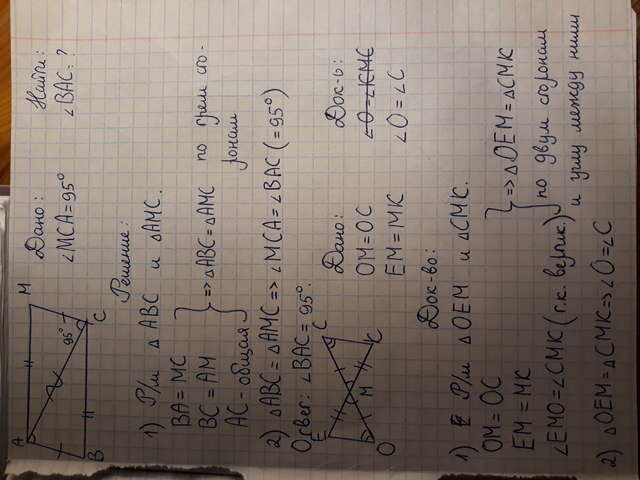 A M
95°
B C
Дано: Найти:
∠MCA = 95° ∠BAC - ?
Решение:
1) Р/м △ABC и △AMC.
BA = MC
BC = AM
AC - общая
=> △ABC = △AMC по трем сто-
ронам
2) △ABC = △AMC => ∠MCA = ∠BAC (= 95°)
Ответ: ∠BAC = 95°.
E C
M
O K
Дано: Док-ь:
OM = OC ∠O = ∠KMC
EM = MK ∠O = ∠C
Док-во:
1) Р/м △OEM и △CMK.
OM = OC
EM = MK
∠EMO = ∠CMK (т.к. вертик.)
=> △OEM = △CMK
по двум сторонам
и углу между ними
2) △OEM = △CMK => ∠O = ∠C